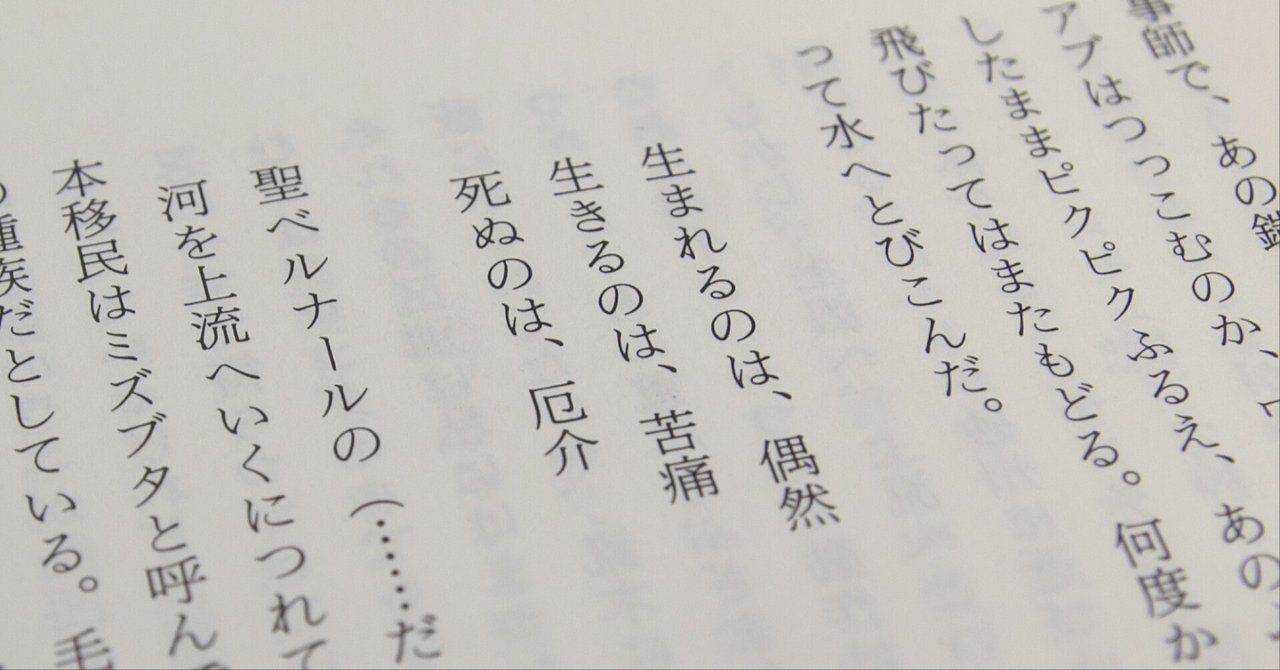 事師で、あの鋭
アブはつっこむのか、
したままピクピクふるえ、あの
飛びたってはまたもどる。何度か
って水へとびこんだ。
生まれるのは、偶然
生きるのは、苦痛
死ぬのは、厄介
聖ベルナールの（……だ
河を上流へいくにつれて
本移民はミズブタと呼んで
種族だとしている。毛